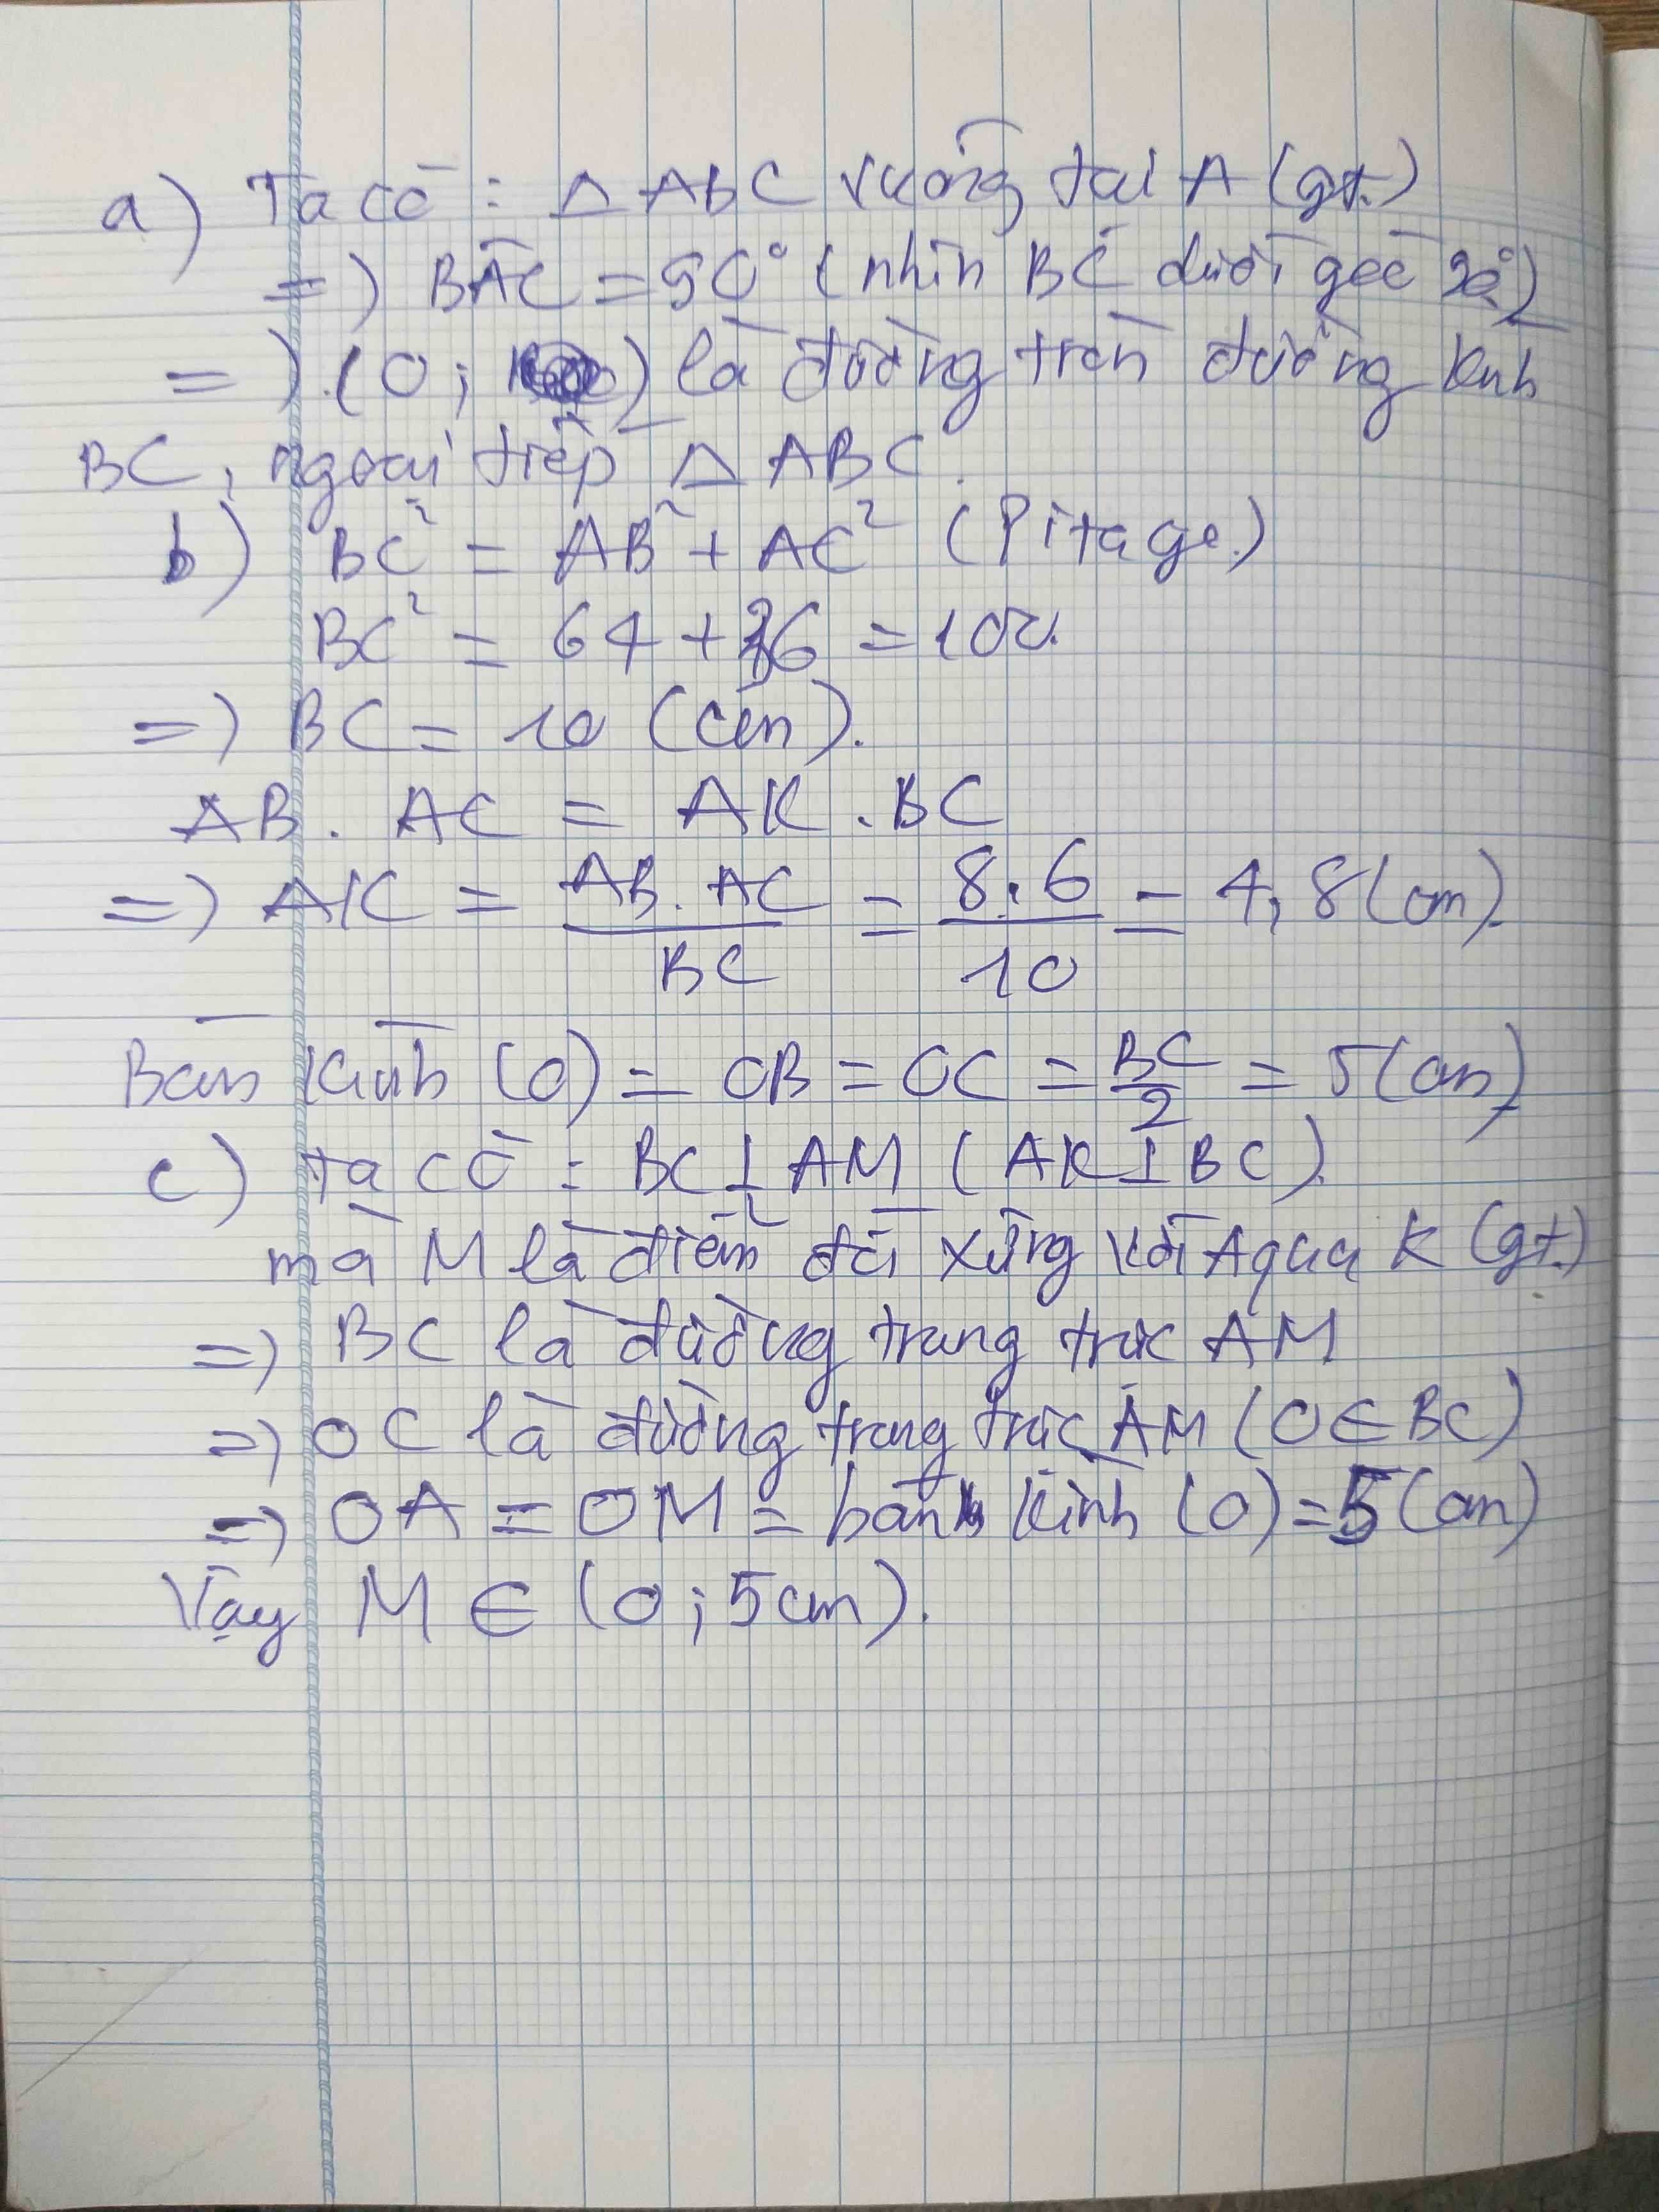 a) Ta có : △ ABC vuông tại A (gt.)
=> BÂC = 90° (nhìn BC dưới góc 90°)
=> (O; ) là đường tròn đường kính
BC, ngoại tiếp △ ABC.
b) BC² = AB² + AC² (Pitago.)
BC² = 64 + 36 = 100.
=> BC = 10 (cm).
AB . AC = AK . BC
=> AK = AB. AC / BC = 8.6 / 10 = 4,8 (cm).
Bán kính (O) = OB = OC = BC / 2 = 5 (cm)
c) Ta có : BC ⊥ AM ( AK ⊥ BC ).
mà M là điểm đối xứng với A qua K (gt.)
=> BC là đường trung trực AM
=> OC là đường trung trực AM (O ∈ BC)
=> OA = OM = bán kính (O) = 5 (cm)
Vậy M ∈ (O ; 5cm).